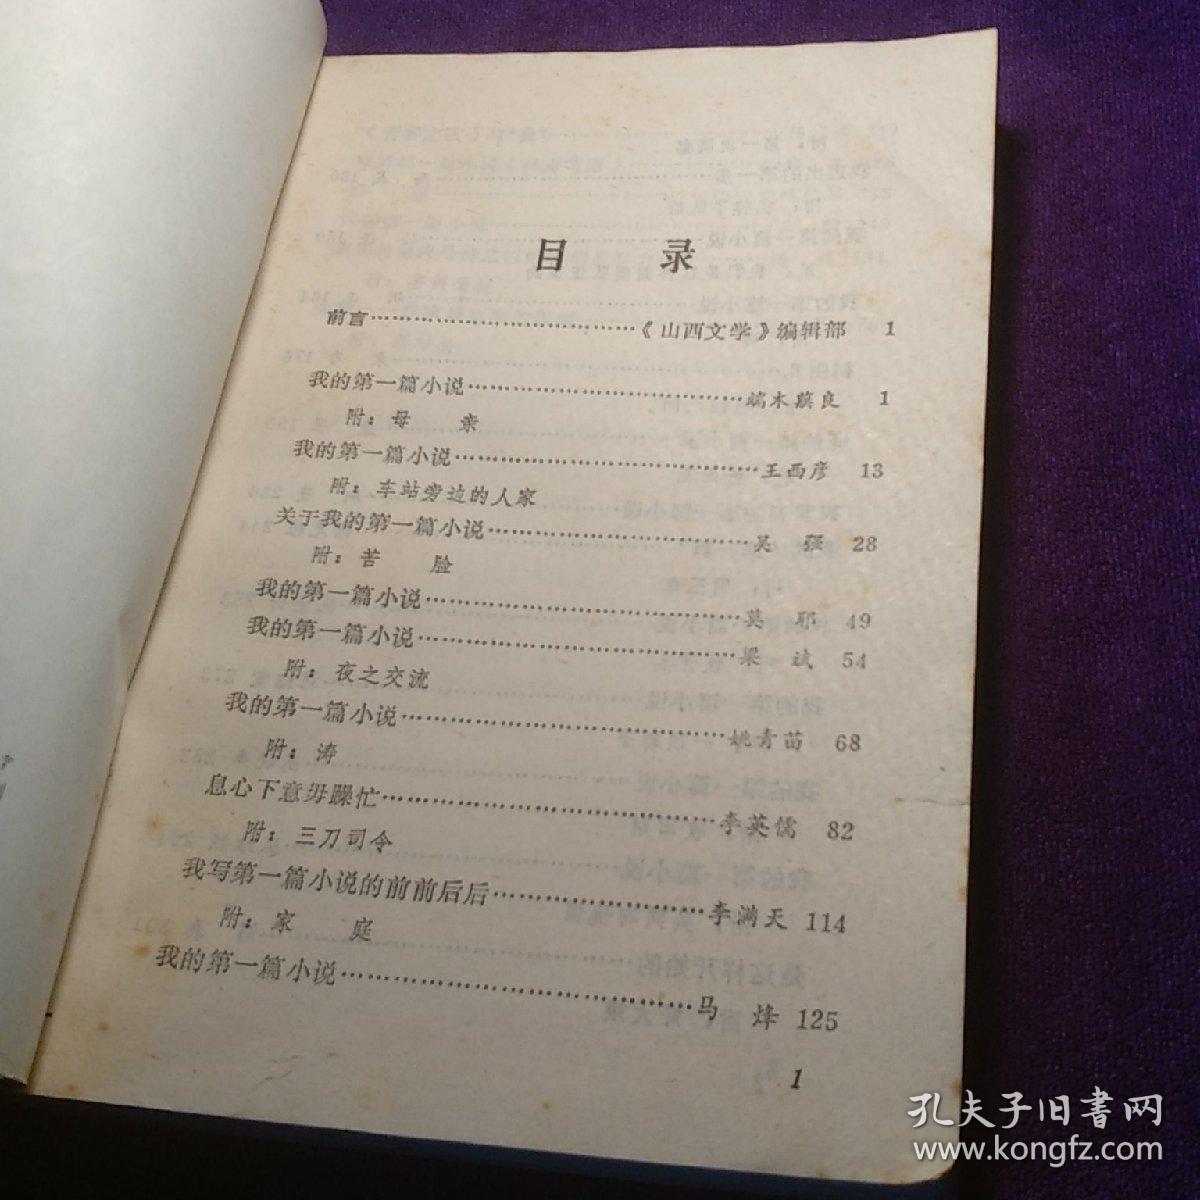 目 录
前言……《山西文学》编辑部 1
我的第一篇小说……端木蕻良 1
附：母 亲
我的第一篇小说……王西彦 13
附：车站旁边的人家
关于我的第一篇小说……吴 强 28
附：苦 脸
我的第一篇小说……莫 耶 49
我的第一篇小说……梁 斌 54
附：夜之交流
我的第一篇小说……姚青苗 68
附：涛
息心下意毋躁忙……李英儒 82
附：三刀司令
我写第一篇小说的前前后后……李满天 114
附：家 庭
我的第一篇小说……马 烽 125
1
孔夫子旧书网
www.kongfz.com